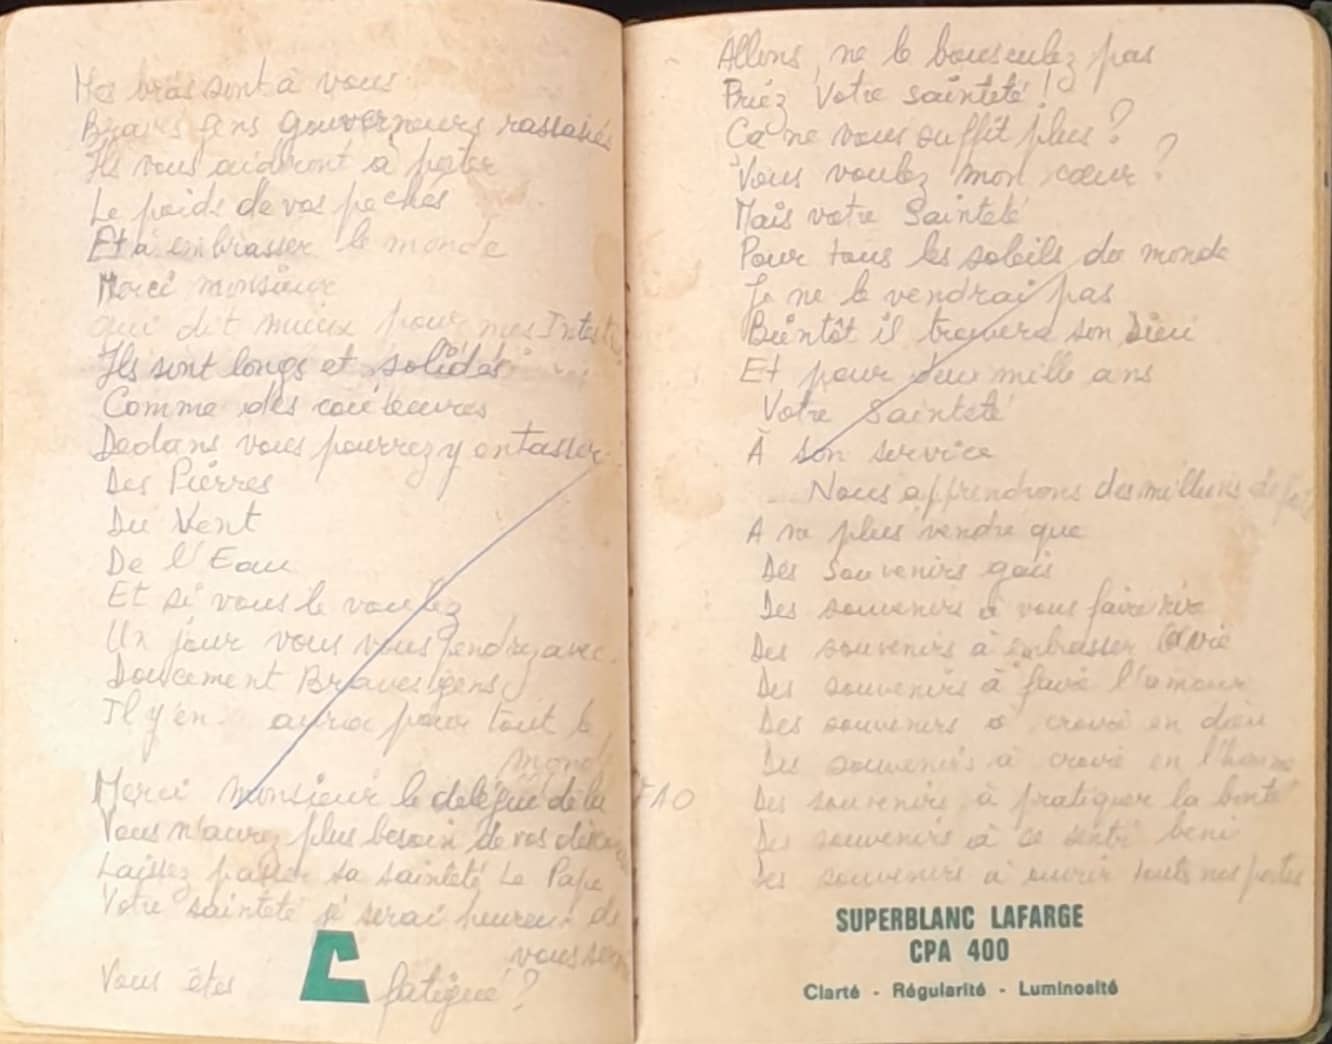 Mes bras sont à vous
Braves gens gouverneurs rassasiés
Ils vous aideront à porter
Le poids de vos pechés
Et à embrasser le monde
Merci monsieur
qui dit mieux pour mes
Ils sont longs et solides
Comme des couleuvres
Dedans vous pourrez y entasser
Des Pierres
Du Vent
De l'Eau
Et si vous le voulez
Un jour vous vous pendrez avec
Doucement Braves gens
Il y en aura pour tout le
mond
Merci monsieur le délégué de la FAO
Vous n'aurez plus besoin de vos
Laissez passer sa sainteté Le Pape
Votre sainteté je serai heureux de
vous
Vous êtes fatigué ?
Allons, ne le bousculez pas
Priez Votre sainteté !
Ca ne vous suffit plus ?
Vous voulez mon cœur ?
Mais votre Sainteté
Pour tous les soleils du monde
Je ne le vendrai pas
Bientôt il trouvera son Dieu
Et pour deux mille ans
Votre Sainteté
À son service
Nous apprendrons des millions de
A ne plus vendre que
Des Souvenirs gais
Des souvenirs à vous faire rire
Des souvenirs à embrasser la vie
Des souvenirs à faire l'amour
Des souvenirs à croire en dieu
Des souvenirs à croire en l'homme
Des souvenirs à pratiquer la bonté
Des souvenirs à ce sentir beni
Des souvenirs à ouvrir touts nos portes
SUPERBLANC LAFARGE
CPA 400
Clarté - Régularité - Luminosité